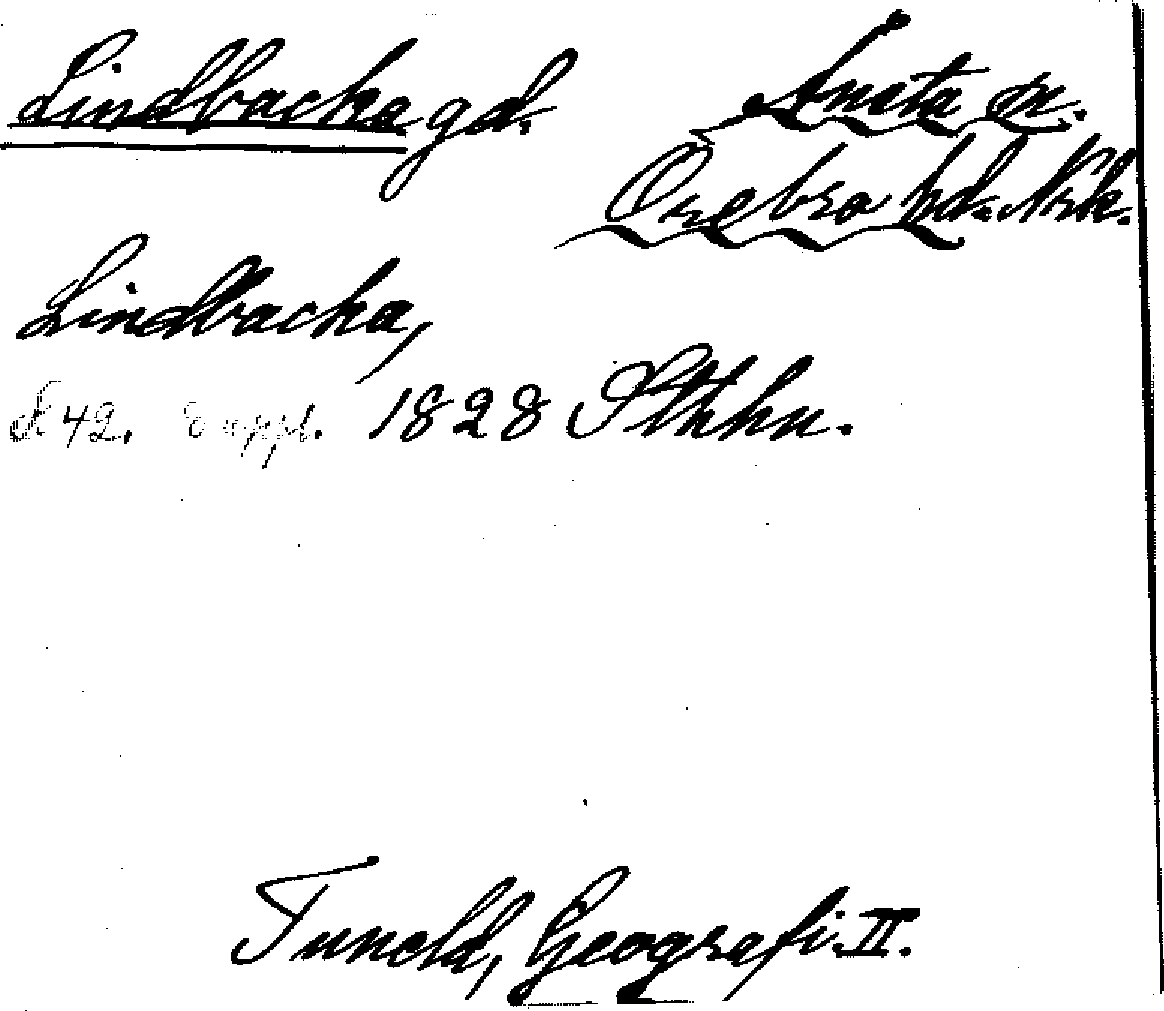 Lindbacka gd. Ånsta sn.
Örebro hd. Nrk.
Lindbacka,
s 42. 8 uppl. 1828 Sthlm.
Tuneld, Geografi. II.